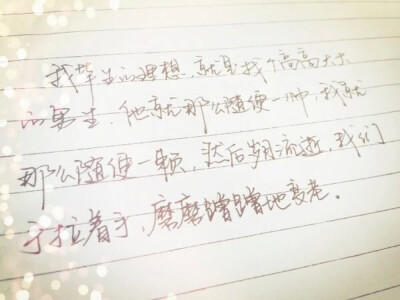 我毕生的理想，就是找个高高大大
的男生，他就那么随便一帅，我就
那么随便一靠，然后岁月流逝，我们
手拉着手，磨磨蹭蹭地变老。